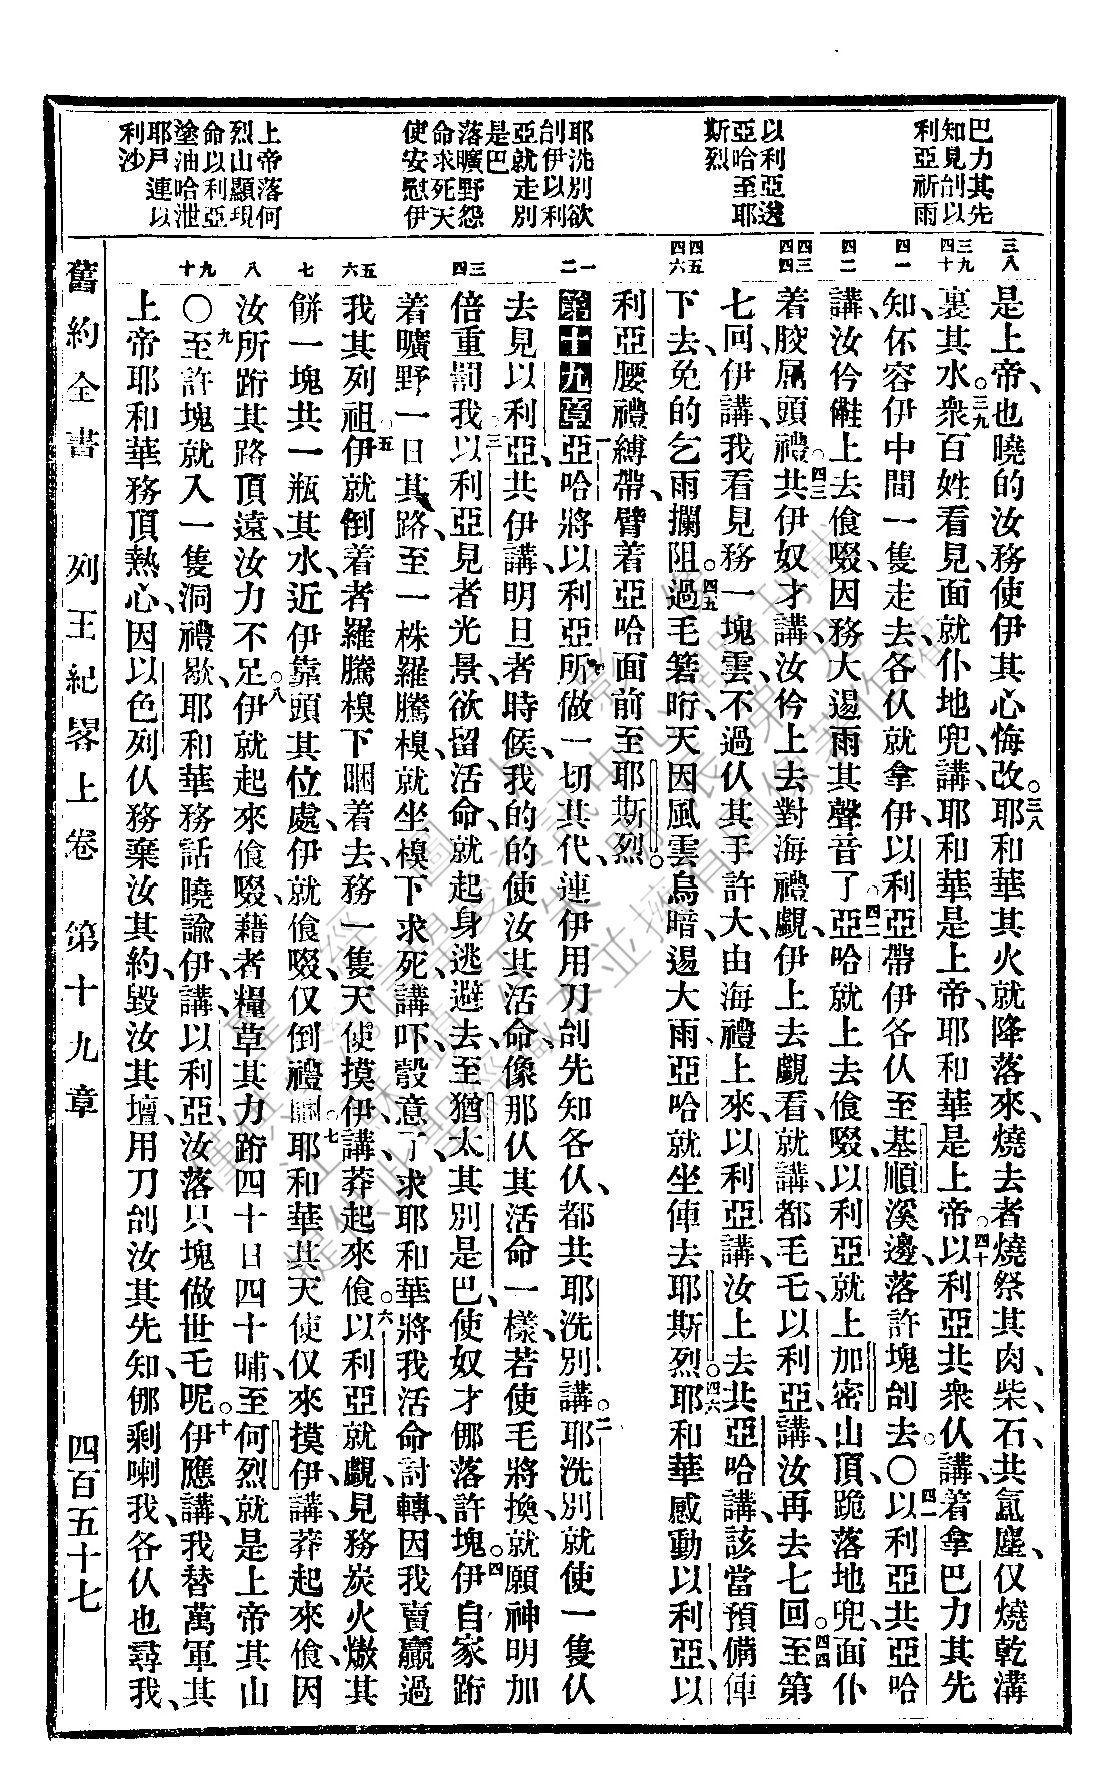 巴力其先
知見刣以
利亞祈雨
以利亞逿
亞哈至耶
斯烈
耶洗別欲
刣伊以利
亞就走別
是巴
落曠野怨
命求死天
使安慰伊
上帝落何
烈山顯現
命以利亞
塗油哈泄
耶戶連以
利沙
三八
三九
四十
四一
四二
四三
四四
四五
四六
一
二
三
四
五
六
七
八
九
十
是上帝、也曉的汝務使伊其心悔改。三八耶和華其火就降落來、燒去者燒祭其肉、柴、石、共氲塵、仅燒乾溝
裏其水。三九衆百姓看見、面就仆地兜、講、耶和華是上帝、耶和華是上帝。四十以利亞共衆仈講、着拿巴力其先
知、伓容伊中間一隻走去、各仈就拿伊、以利亞帶伊各仈至基順溪邊、落許塊刣去。〇四一以利亞共亞哈
講、汝仱𠆧上去飧啜、因務大逿雨其聲音了。四二亞哈就上去飧啜、以利亞就上加密山頂、跪落地兜、面仆
着骹𩩍頭禮。四三共伊奴才講、汝仱上去對海禮覷、伊上去覷看、就講、都毛乇、以利亞講、汝再去七回。四四至第
七回、伊講、我看見務一塊雲、不過仈其手許大、由海禮上來、以利亞講、汝上去共亞哈講、該當預備俥
下去、免的乞雨攔阻。四五過毛箬晌、天因風雲烏暗、逿大雨、亞哈就坐俥去耶斯烈。四六耶和華感動以利亞、以
利亞腰禮縛帶、臂着亞哈面前至耶斯烈。
第十九章一亞哈將以利亞所做一切其代、連伊用刀刣先知各仈、都共耶洗別講。二耶洗別就使一隻仈
去見以利亞、共伊講、明旦者時候、我的的使汝其活命、像那仈其活命一樣、若使毛將換、就願神明加
倍重罰我。三以利亞見者光景、欲留活命、就起身逃避去、至猶太其別是巴、使奴才𠊎落許塊。四伊自家跨
着曠野一日其路、至一株羅騰槼、就坐槼下求死、講、吓、彀意了、求耶和華將我活命討轉、因我賣贏過
我其列祖。五伊就倒着者羅騰槼下𥇀着去、務一隻天使摸伊、講、莽起來飧。六以利亞就覷見務炭火燉其
餅一塊、共一瓶其水、近伊靠頭其位處、伊就飧啜、仅倒禮𥇀。七耶和華其天使仅來摸伊、講、莽起來飧、因
汝所跨其路頂遠、汝力不足。八伊就起來飧啜、藉者糧草其力、跨四十日四十晡、至何烈、就是上帝其山。
〇九至許塊就入一隻洞禮歇、耶和華務話曉諭伊、講、以利亞、汝落只塊做世乇呢。十伊應講、我替萬軍其
上帝耶和華務頂熱心、因以色列仈務棄汝其約、毀汝其壇、用刀刣汝其先知、𠊎剩喇我、各仈也尋我、
舊約全書　列王紀畧上卷　第十九章　四百五十七